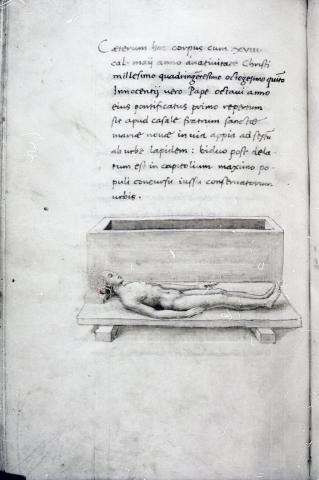 Cæterum hoc corpus cum xviiii
cal· maij anno a nativitate Christi
millesimo quadringetesimo octogesimo quīto
Innocentij vero Pape octavi anno
eius pontificatus primo repertum
sit apud casale fratrum sanctæ
mariæ novæ in via appia ad sextū
ab urbe lapidem : biduo post dela-
tum est in capitolium maximo po-
puli concursu iussu conservatorum
urbis .